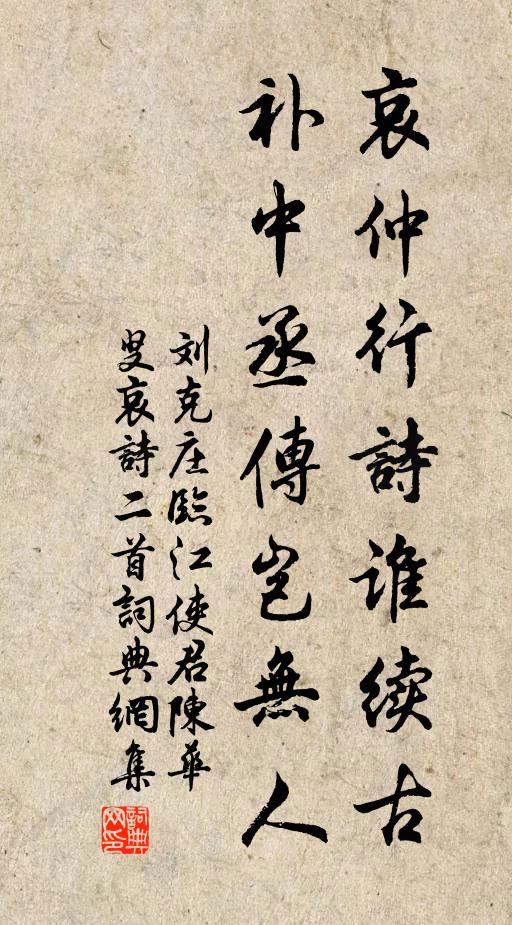 哀仲行詩谁续古
补中丞傳岂無人
刘克庄臨江使君陳華
叟哀詩二首詞典網集
詞典
网印